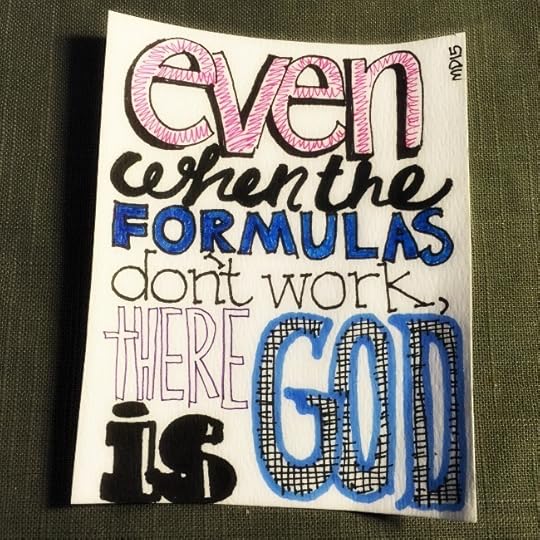 even
when the
FORMULAS
don't work,
THERE
is GOD
MD15